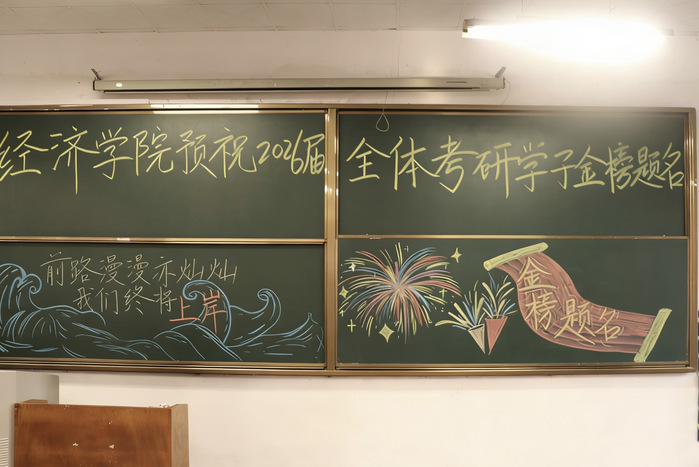 经济学院预祝2026届
全体考研学子金榜题名
前路漫漫亦灿灿
我们终将上岸
金榜题名